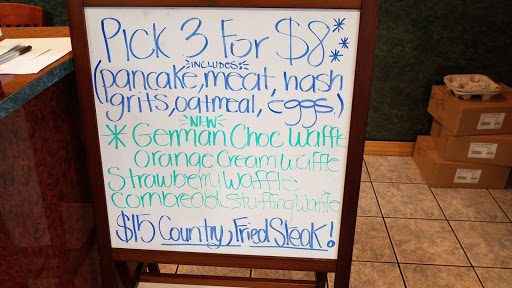 Pick 3 for $8**
INCLUDES:
(pancake, meat, hash
grits, oatmeal, eggs.)
NEW
* German Choc Waffle
orange cream waffle
Strawberry Waffle
cornbread stuffing waffle
$15 Country Fried Steak!